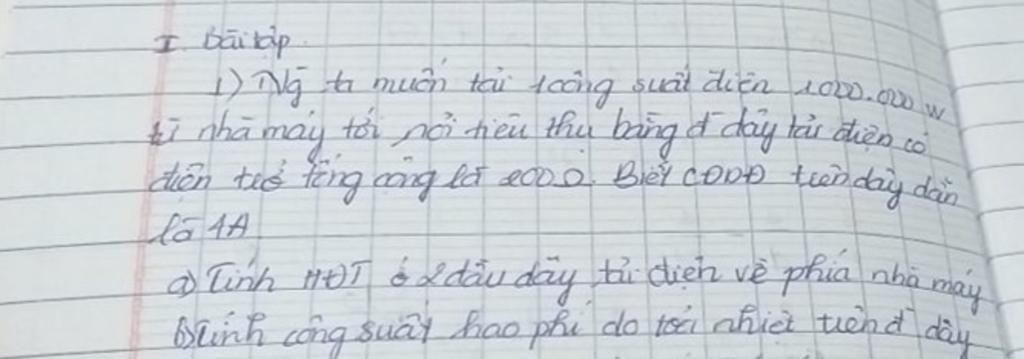 I bài tập.
1) Ng ta muốn tải 1 công suất điện 1000.000 W
từ nhà máy tới nơi tiêu thụ bằng đ dây tải điện có
điện trở tổng cộng là 200Ω. Biết CĐDĐ trên dây dẫn
là 1A
a) Tính HĐT ở 2 đầu dây tải điện về phía nhà máy
b) Tính công suất hao phí do toả nhiệt trên đ dây